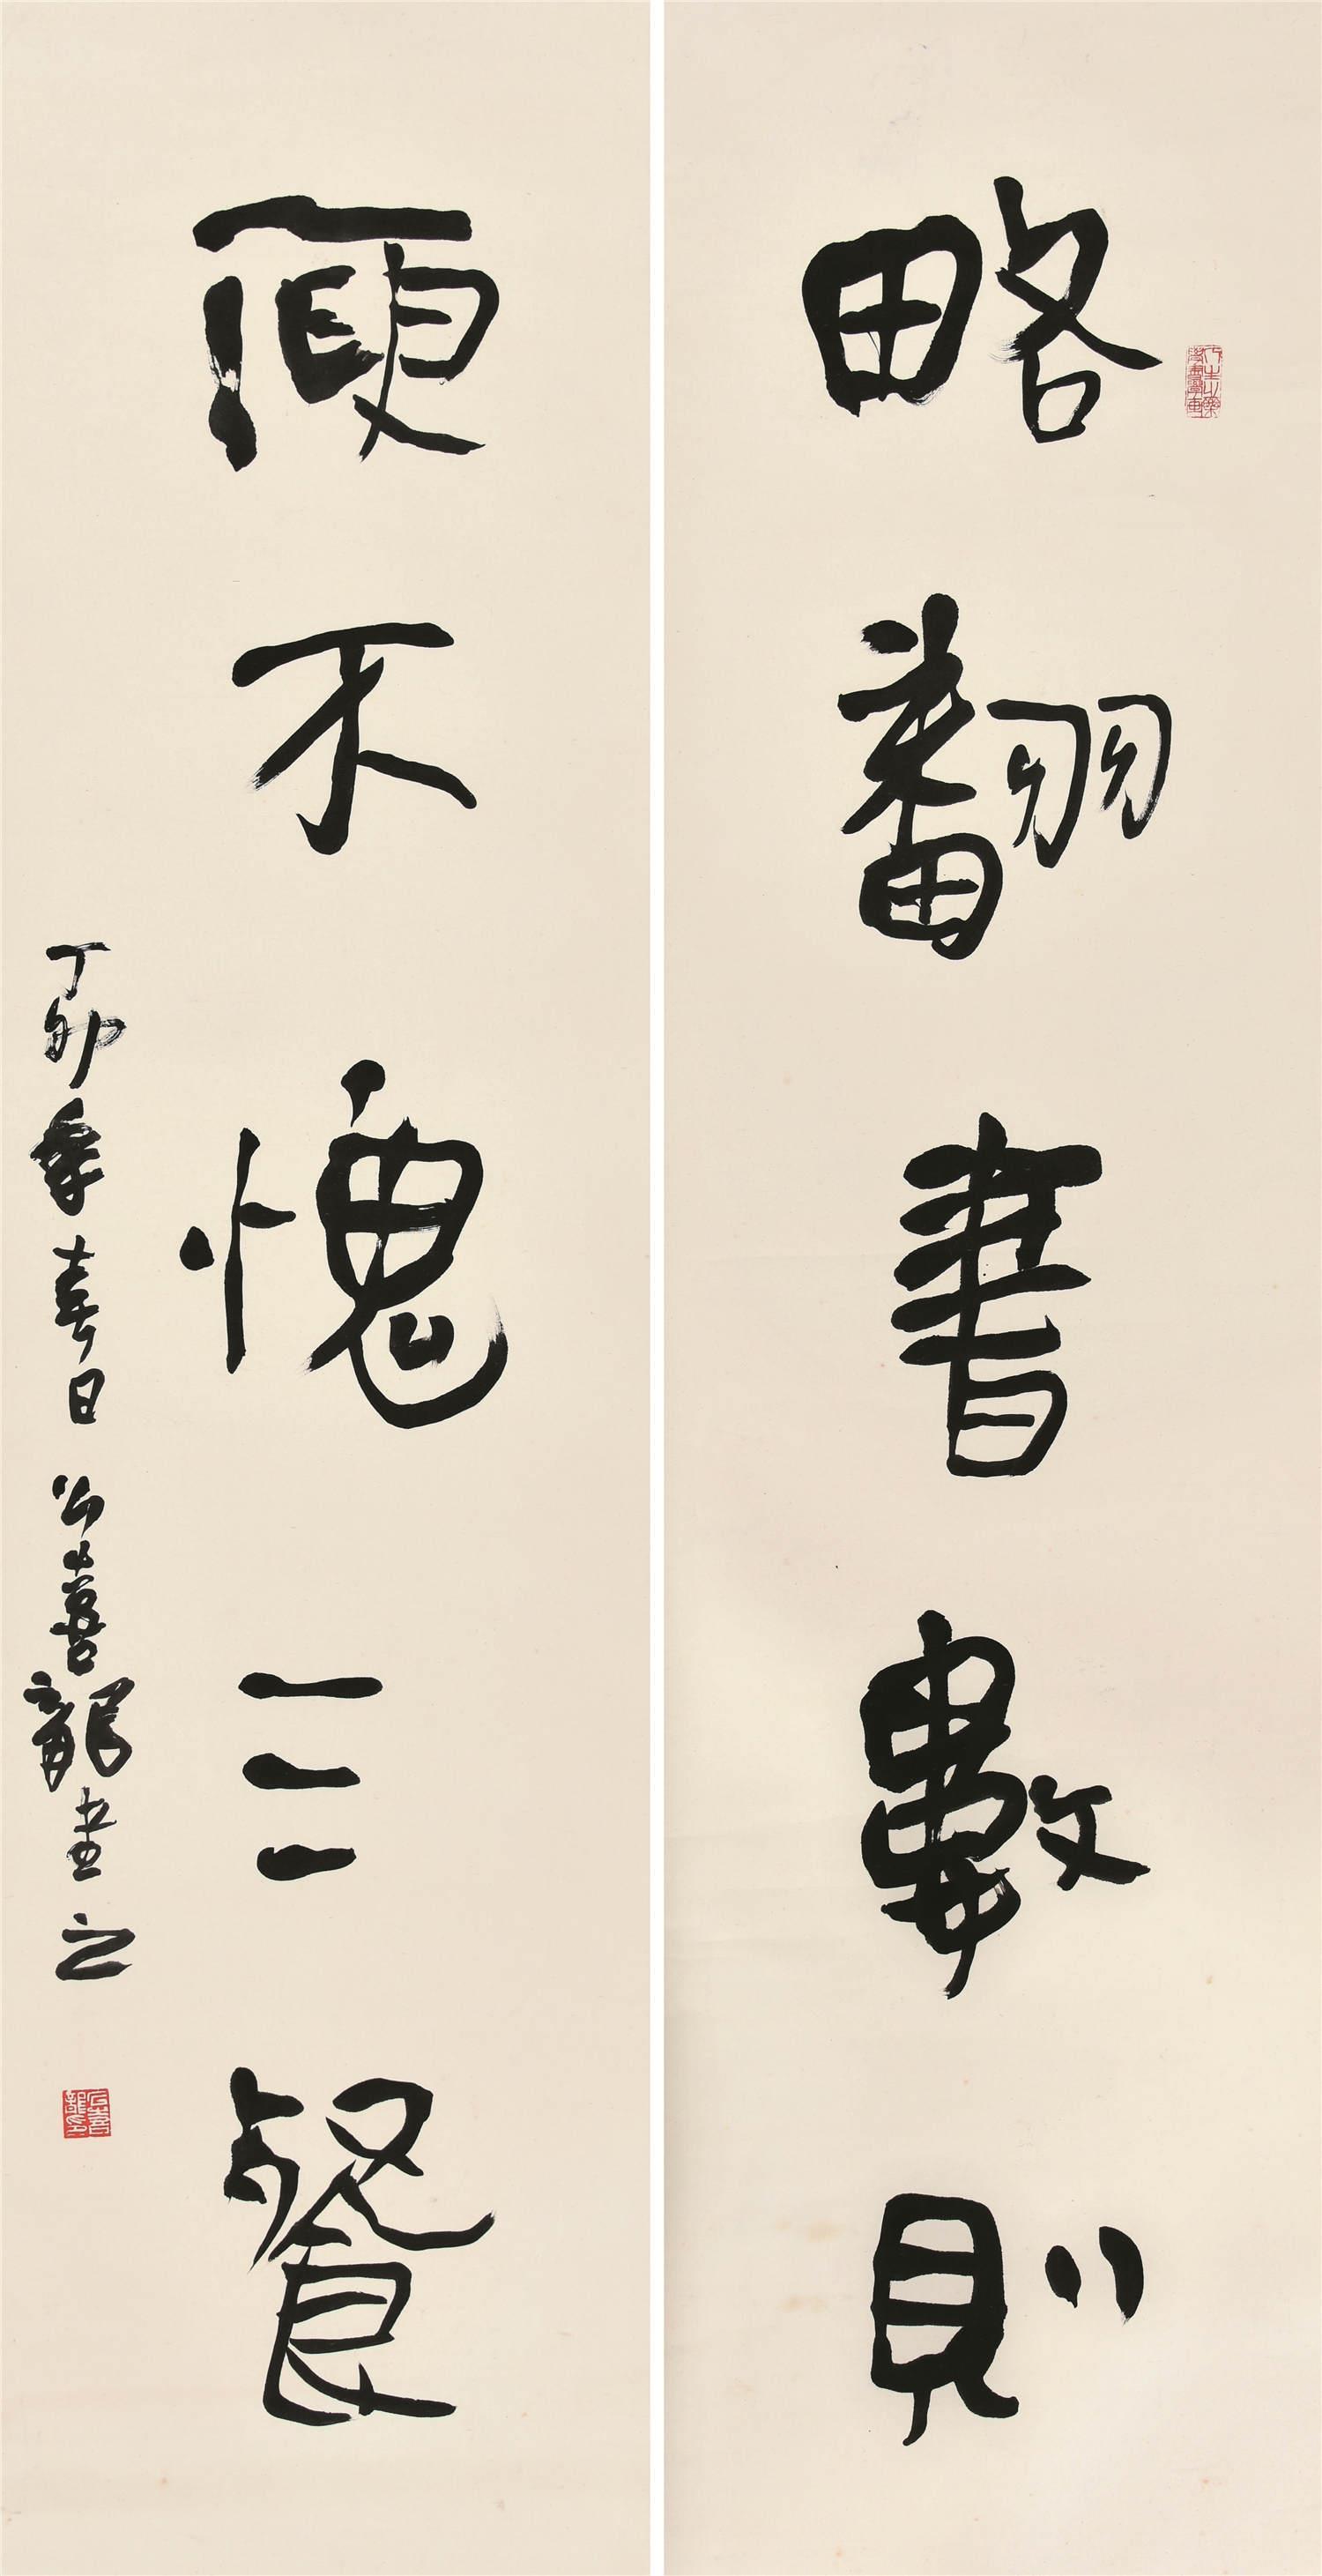 略翻書數則
便不愧三餐
丁卯年春日 喜龍書之